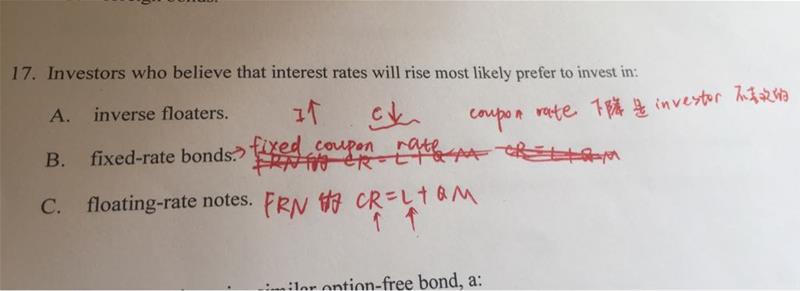 foreign bonds.
17. Investors who believe that interest rates will rise most likely prefer to invest in:
A. inverse floaters. I↑ C↓ coupon rate 下降 是 investor 不喜欢的
B. fixed-rate bonds.→ fixed coupon rate
FRN 的 CR=L+QM CR=L+QM
C. floating-rate notes. FRN 的 CR=L+QM
↑ ↑
similar option-free bond, a: